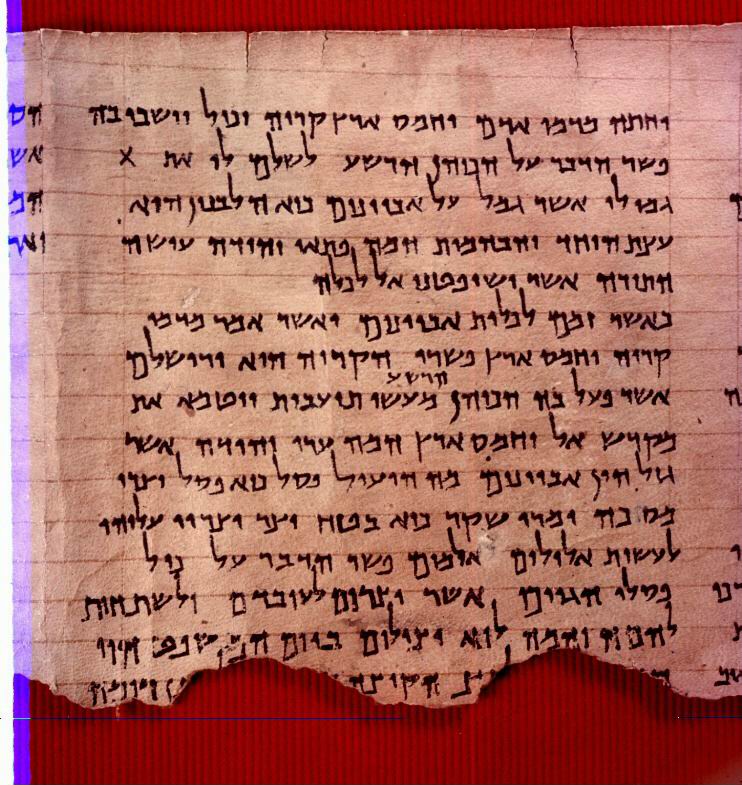 יחתה מדמי אדם וחמס ארץ קריה וכול יושבי בה
פשר הדבר על הכוהן הרשע לשלם לו את X
גמולו אשר גמל על אביונים כיא הלבנון הוא
עצת היחד והבהמות המה פתאי יהודה עושה
התורה אשר ישופטנו אל לכלה
כאשר זמם לכלות אביונים ואשר אמר מדמי
קריה וחמס ארץ פשרו הקריה היא ירושלם
הרשע
אשר פעל בה הכוהן מעשי תועבות ויטמא את
מקדש אל וחמס ארץ המה ערי יהודה אשר
גזל הון אביונים מה הועיל פסל כיא פסל יצרו
מסיכה ומרי שקר כיא בטח יצר יצריו עליהו
לעשות אלילים אלמים פשר הדבר על כול
פסלי הגוים אשר יצרום לעובדם ולשתחות
להמה והמה לוא יצילום ביום המשפט הוי
הקיצה